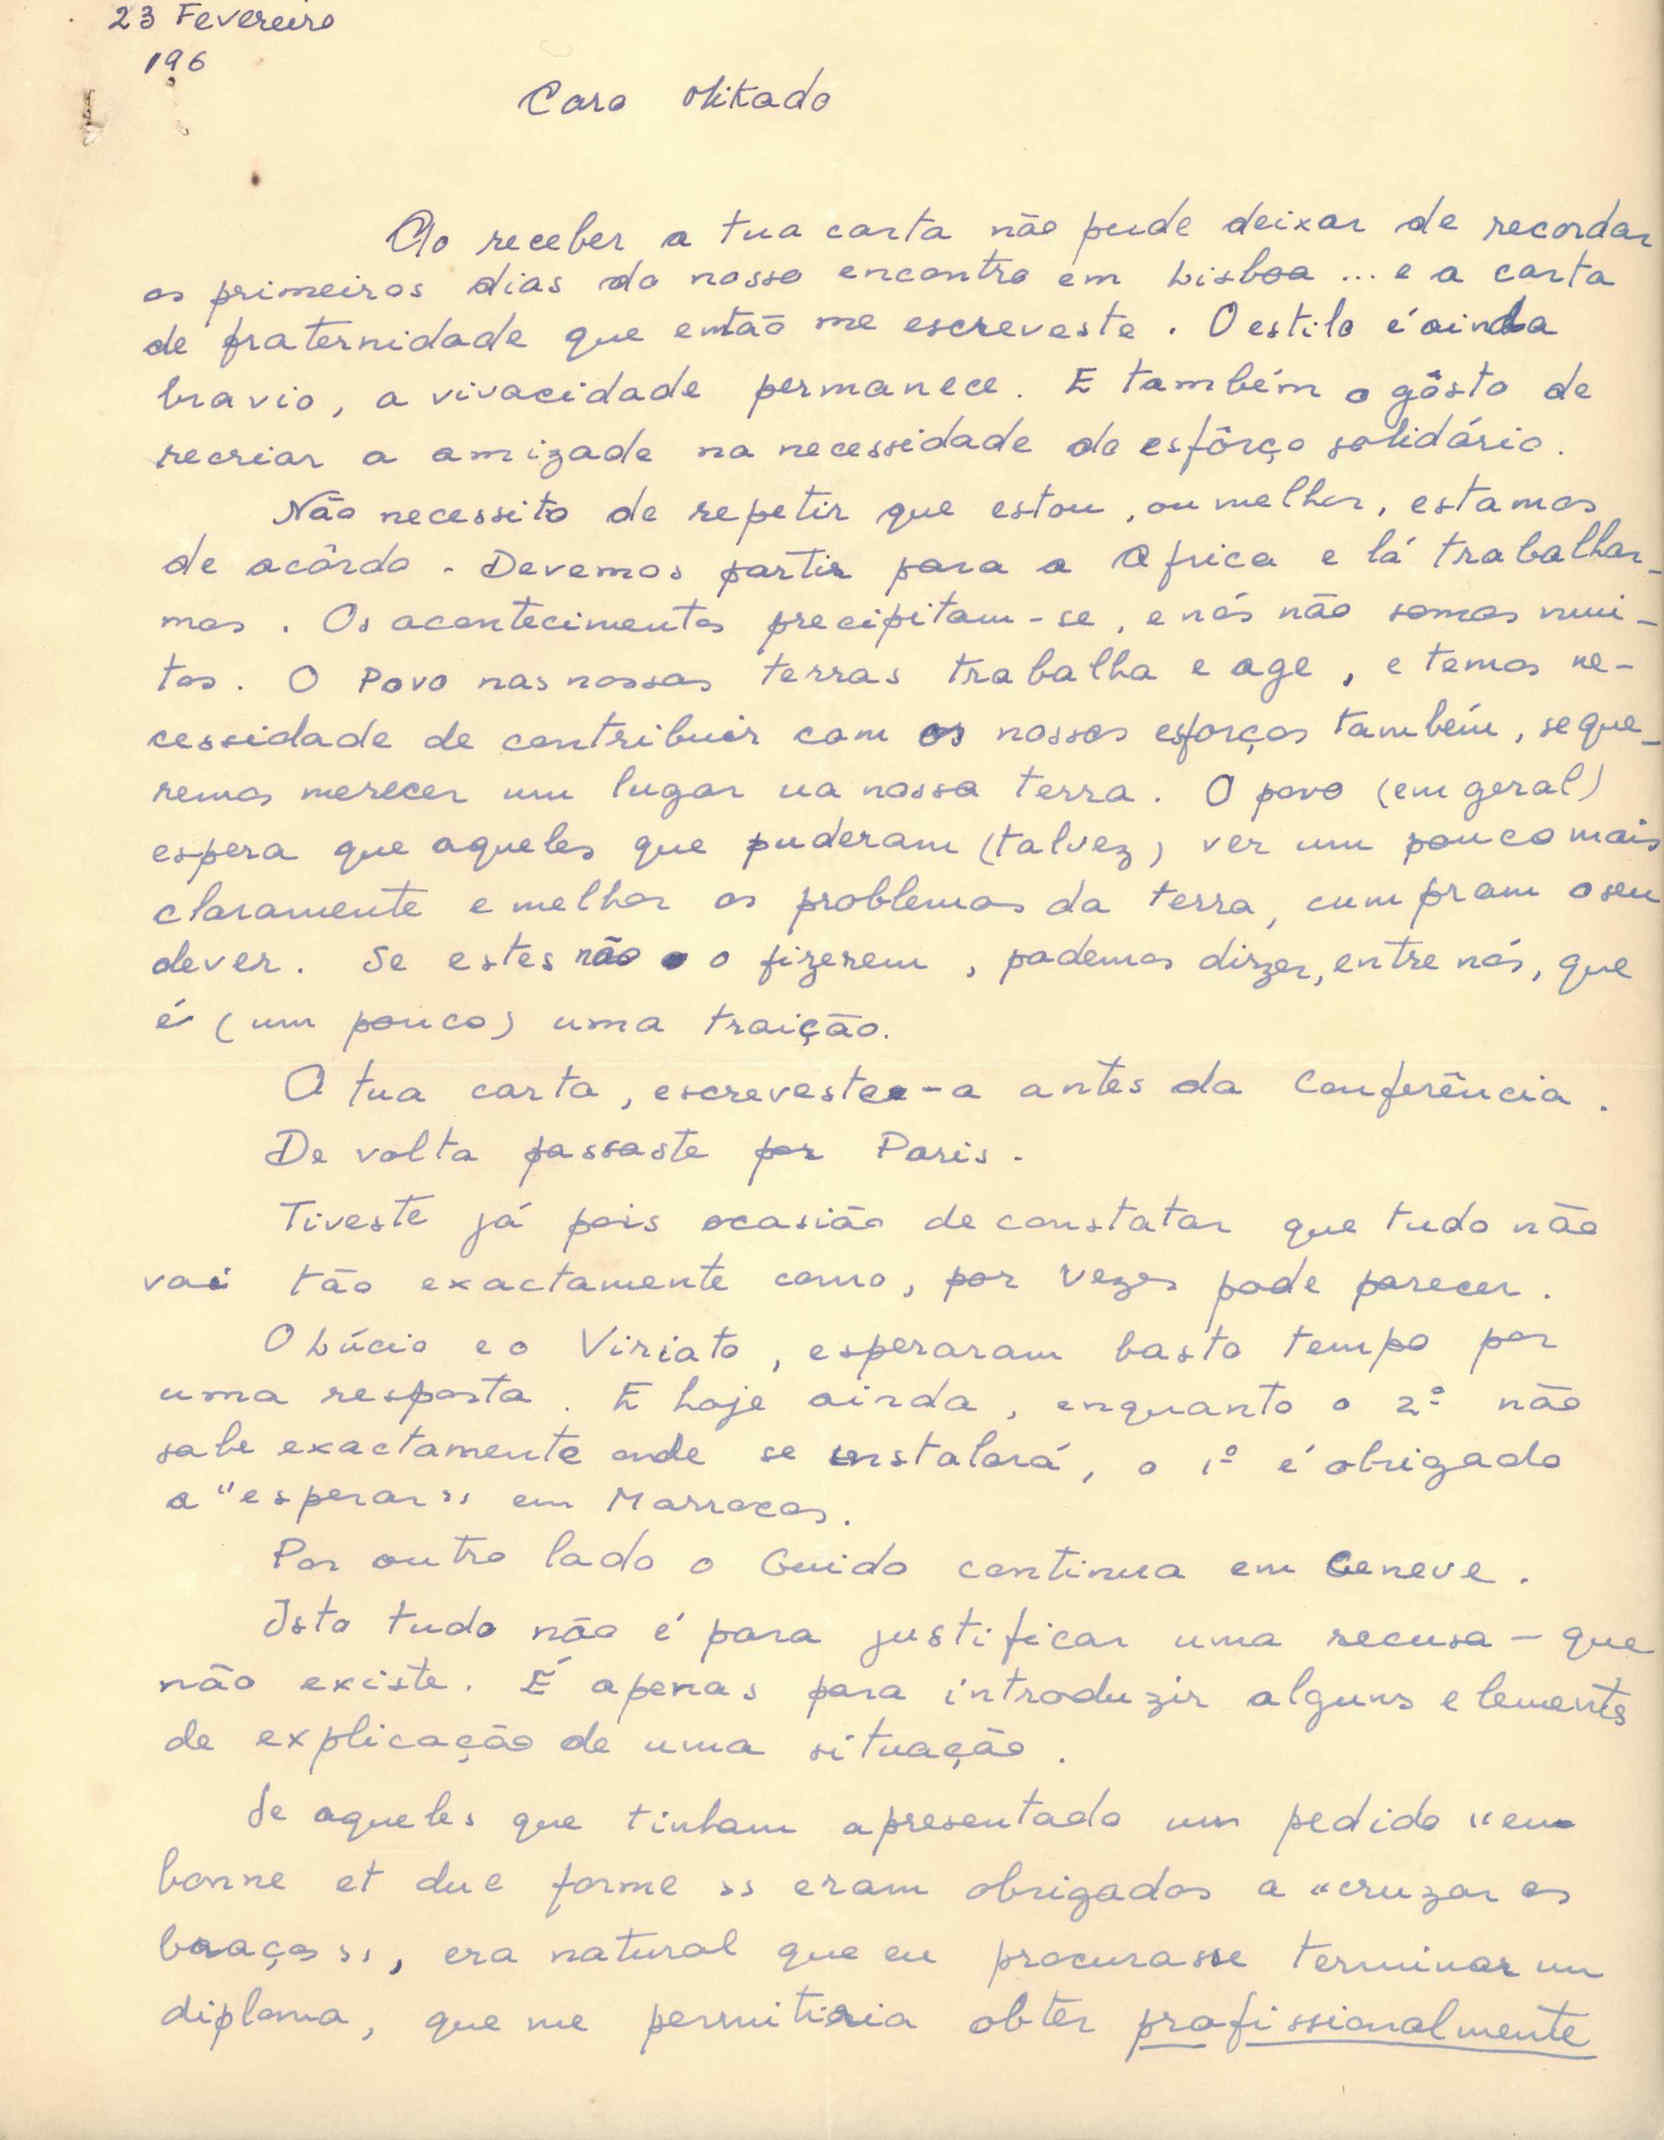 23 Fevereiro
196
Caro Mikado
Ao receber a tua carta não pude deixar de recordar
os primeiros dias do nosso encontro em Lisboa ... e a carta
de fraternidade que então me escreveste. O estilo é ainda
bravio, a vivacidade permanece. E também o gôsto de
recriar a amizade na necessidade do esfôrço solidário.
Não necessito de repetir que estou, ou melhor, estamos
de acôrdo. Devemos partir para a Africa e lá trabalhar-
mos. Os acontecimentos precipitam-se, e nós não somos mui-
tos. O Povo nas nossas terras trabalha e age, e temos ne-
cessidade de contribuir com os nossos esforços também, se que-
remos merecer um lugar na nossa terra. O povo (em geral)
espera que aqueles que puderam (talvez) ver um pouco mais
claramente e melhor os problemas da terra, cumpram o seu
dever. Se estes não o fizerem, podemos dizer, entre nós, que
é (um pouco) uma traição.
A tua carta, escreveste-a antes da Conferência.
De volta passaste por Paris.
Tiveste já pois ocasião de constatar que tudo não
vai tão exactamente como, por vezes pode parecer.
O Lúcio e o Viriato, esperaram basto tempo por
uma resposta. E hoje ainda, enquanto o 2º não
sabe exactamente onde se instalará, o 1º é obrigado
a "esperar" em Marrocos.
Por outro lado o Guido continua em Geneve.
Isto tudo não é para justificar uma recusa - que
não existe. É apenas para introduzir alguns elementos
de explicação de uma situação.
Se aqueles que tinham apresentado um pedido "en
bonne et due forme" eram obrigados a "cruzar os
braços", era natural que eu procurasse terminar um
diploma, que me permitiria obter profissionalmente